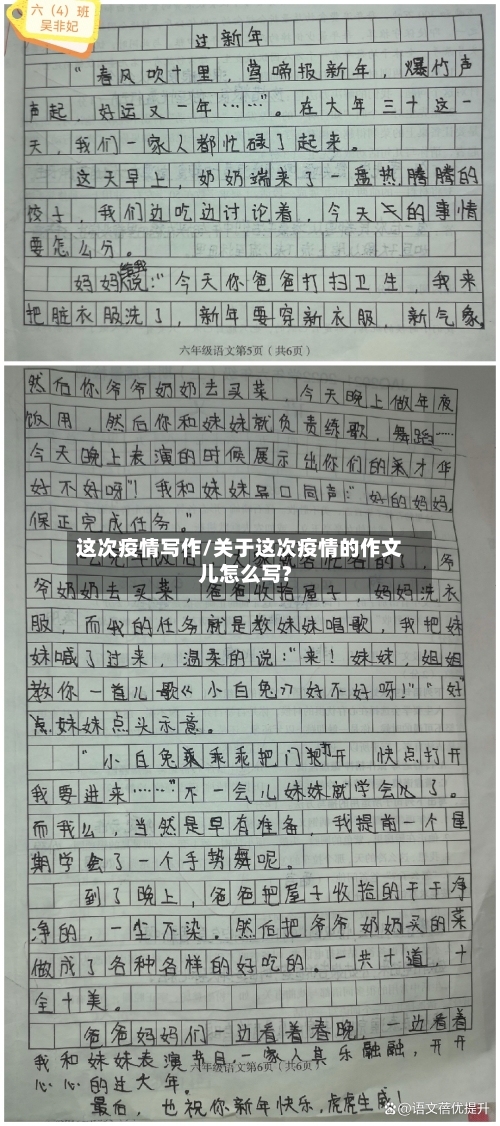 六（4）班
吴非妃
过新年
“春风吹十里，莺啼报新年，爆竹声
声起，好运又一年……”。在大年三十这一
天，我们一家人都忙碌了起来。
这天早上，奶奶端来了一盘热腾腾的
饺子，我们边吃边讨论着，今天的事情
要怎么分。
妈妈说：“今天你爸爸打扫卫生，我来
把脏衣服洗了，新年要穿新衣服，新气象，
六年级语文第5页（共6页）
然后你爷爷奶奶去买菜，今天晚上做年夜
饭用，然后你和妹妹就负责练歌，舞蹈……
今天晚上表演的时候展示出你们的采才华
好不好呀”！我和妹妹异口同声：“好的妈妈，
保正完成任务。”
这次疫情写作/关于这次疫情的作文
儿怎么写?
爷奶奶去买菜，爸爸收拾屋子，妈妈洗衣
服，而我的任务就是教妹妹唱歌，我把妹
妹喊了过来，温柔的说：“来！妹妹，姐姐
教你一首儿歌《小白兔》好不好呀！”“好”
妹妹点头示意。
“小白兔乖乖把门打开，快点打开
我要进来……”不一会儿妹妹就学会了。
而我么，当然是早有准备，我提前一个星
期学会了一个手势舞呢。
到了晚上，爸爸把屋子收拾的干干净
净的，一尘不染。然后把爷爷奶奶买的菜
做成了各种各样的好吃的。一共十道，十
全十美。
爸爸妈妈们一边看着春晚，一边看着
我和妹妹表演节目，一家人其乐融融，开开
心心的过大年。
六年级语文第6页（共6页）
最后，也祝你新年快乐，虎虎生威！
@语文蓓优提升